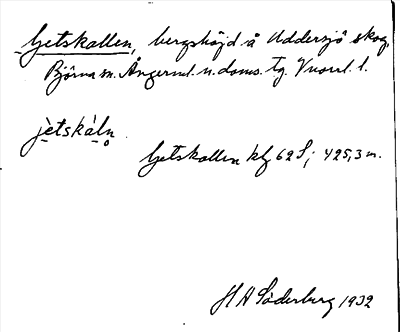 Getskallen, bergshöjd å Uddersjö skog,
Björna sn. Ångerml. n. doms. tg. Vnorrl. l.
jètskàln
Getskallen kbl 62 S; 425,3 m.
H A Söderberg 1932